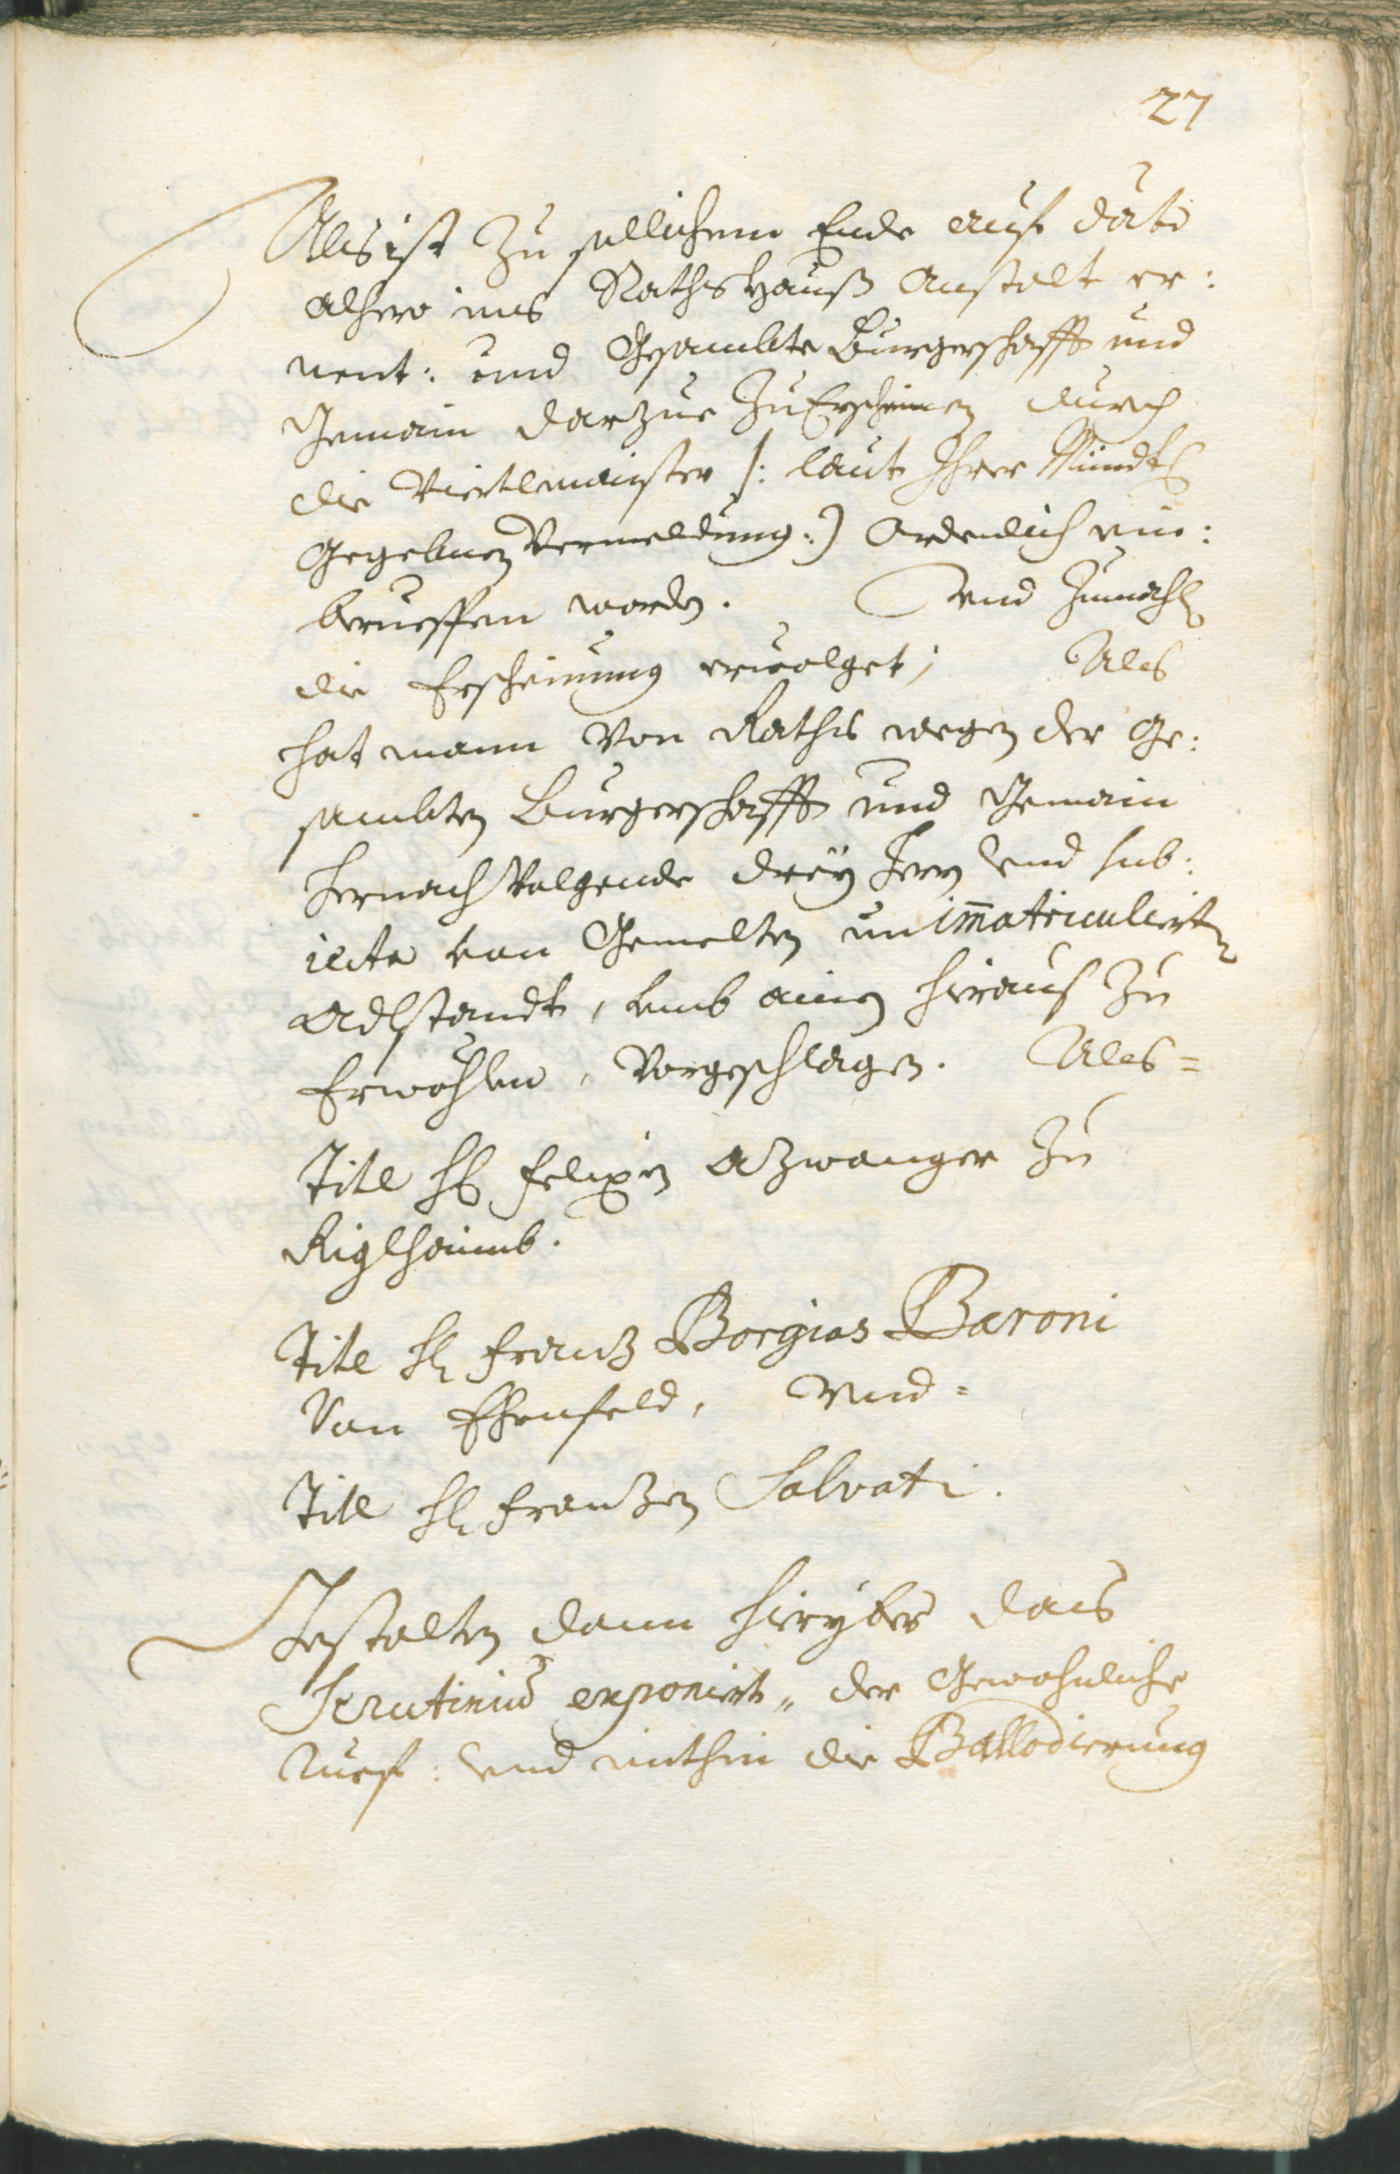 27
Als ist zu sollichem Ende auf dato
alhero ins Rathshauß Anstalt er:
nent: und Gesambte Burgerschafft und
Gemain darzue zu Erscheinen durch
die Viertlmaister /: laut Ihrer Mündtl
Gegebnen Vermeldung :) Ordenlich ein:
berueffen worden. Und zumahl
die Erscheinung ervolget; Als
hat mann von Raths wegen der Ge:
sambten Burgerschafft und Gemain
hernach volgende drey Herrn und sub:
iecta von Gemelten un immatriculirten
Adlstandt, umb ainen hierauf zu
Erwöhlen, Vorgeschlagen. Als=
Titl H: Felixen Azwanger zu
Riglhaimb.
Titl H: Franz Borgias Baroni
Von Ehenfeld, und=
Titl H: Franzen Salvati.
Gestalten dann hieryber das
Scrutinium exponirt, der Gewohnliche
Ruef: und mithin die Ballodierung